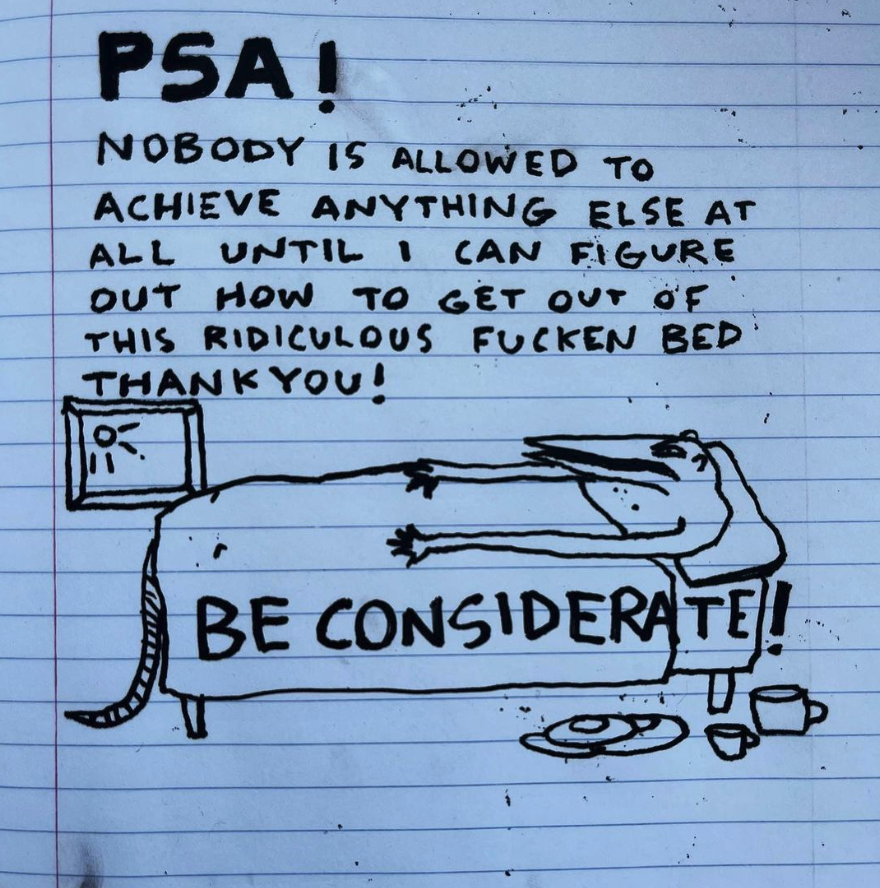 PSA!
NOBODY IS ALLOWED TO
ACHIEVE ANYTHING ELSE AT
ALL UNTIL I CAN FIGURE
OUT HOW TO GET OUT OF
THIS RIDICULOUS FUCKEN BED
THANK YOU!
BE CONSIDERATE!